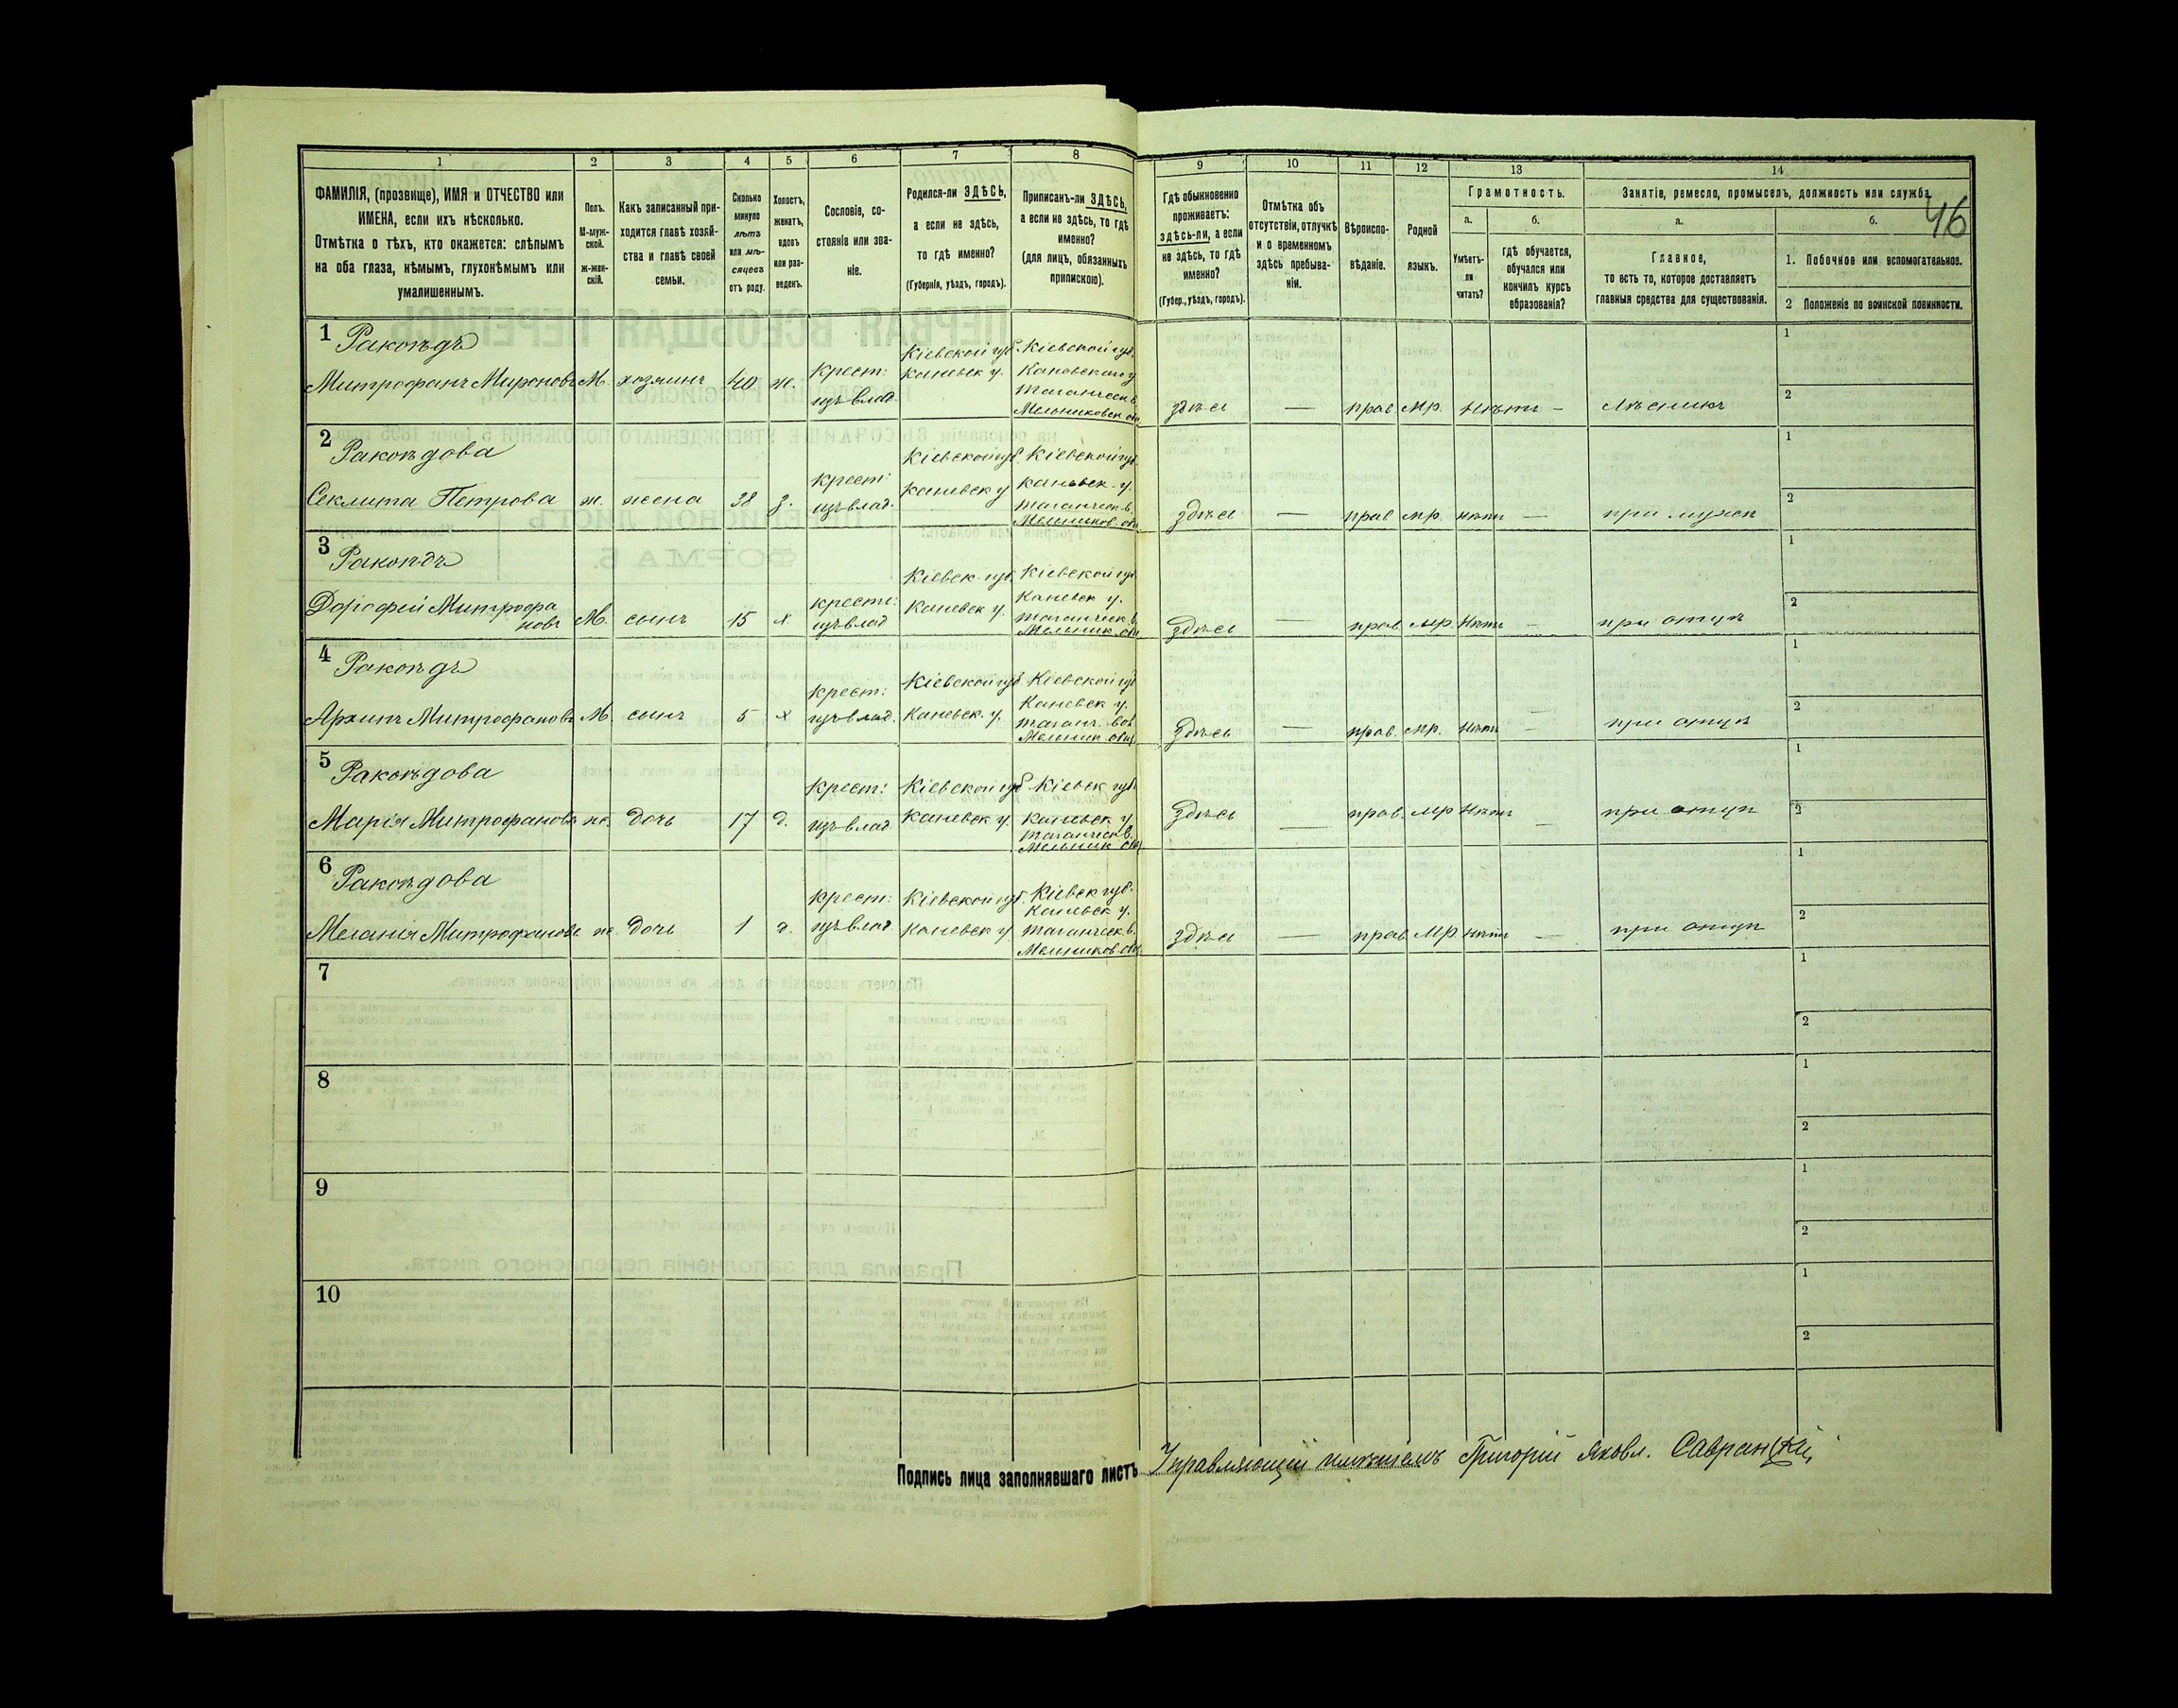 46
1 2 3 4 5 6 7 8 9 10 11 12 13 14
ФАМИЛІЯ, (прозвище), ИМЯ и ОТЧЕСТВО или
ИМЕНА, если ихъ нѣсколько.
Отмѣтка о тѣхъ, кто окажется: слѣпымъ
на оба глаза, нѣмымъ, глухонѣмымъ или
умалишеннымъ.
Полъ.
М-муж-
ской.
ж-жен-
скій.
Какъ записанный при-
ходится главѣ хозяй-
ства и главѣ своей
семьи.
Сколько
минуло
лѣтъ
или мѣ-
сяцевъ
отъ роду.
Холостъ,
женатъ,
вдовъ
или раз-
веденъ.
Сословіе, со-
стояніе или зва-
ніе.
Родился-ли ЗДѢСЬ,
а если не здѣсь,
то гдѣ именно?
(Губернія, уѣздъ, городъ).
Приписанъ-ли ЗДѢСЬ,
а если не здѣсь, то гдѣ
именно?
(для лицъ, обязанныхъ
припискою).
Гдѣ обыкновенно
проживаетъ:
здѣсь-ли, а если
не здѣсь, то гдѣ
именно?
(Губер., уѣздъ, городъ).
Отмѣтка объ
отсутствіи, отлучкѣ
и о временномъ
здѣсь пребыва-
ніи.
Вѣроиспо-
вѣданіе.
Родной
языкъ.
Грамотность.
а.
б.
Умѣетъ-
ли
читать?
гдѣ обучается,
обучался или
кончилъ курсъ
образованія?
Занятіе, ремесло, промыселъ, должность или служба
а.
б.
Главное,
то есть то, которое доставляетъ
главныя средства для существованія.
1. Побочное или вспомогательное.
2 Положеніе по воинской повинности.
1 Ракоѣдъ
Митрофанъ Мироновъ М. хозяинъ 40 ж. крест: изъ влад. Кіевской губ. Каневск у. Кіевской губ. Каневскаго у Таганческ в. Мельниковск общ здѣсь — прав. мр. нѣтъ — Лѣсникъ 1 2
2 Ракоѣдова
Секлита Петрова ж. жена 38 з. крест: изъ влад. Кіевской губ. Каневск у Кіевской губ. Каневск. у. Таганческ. в. Мельников. общ здѣсь — прав мр. нѣтъ — при мужѣ 1 2
3 Ракоѣдъ
Дорофей Митрофа
новъ М. сынъ 15 х крест: изъ влад Кіевск. губ. Каневск у. Кіевской губ Каневск у. Таганческ. в. Мельник. общ здѣсь — прав. мр. нѣтъ — при отцѣ 1 2
4 Ракоѣдъ
Архипъ Митрофановъ М сынъ 5 х крест: изъ влад. Кіевской губ Каневск. у. Кіевской губ Каневск у. Таганч. вол Мельник. общ здѣсь — прав. мр. нѣтъ — при отцѣ 1 2
5 Ракоѣдова
Марія Митрофанова ж. дочь 17 д. крест: изъ влад Кіевской губ Каневск у. Кіевск губ Каневск у Таганческ в. Мельник общ. здѣсь — прав. мр нѣтъ — при отцѣ 1 2
6 Ракоѣдова
Меланія Митрофанова ж. дочь 1 д. крест: изъ влад Кіевской губ. Каневск у Кіевск губ. Каневск у. Таганческ. в. Мельников. общ. здѣсь — прав. мр нѣтъ — при отцѣ 1 2
7 1 2
8 1 2
9 1 2
10 1 2
Подпись лица заполнявшаго листъ Управляющій имѣніемъ Григорій Яковл. Савранскій